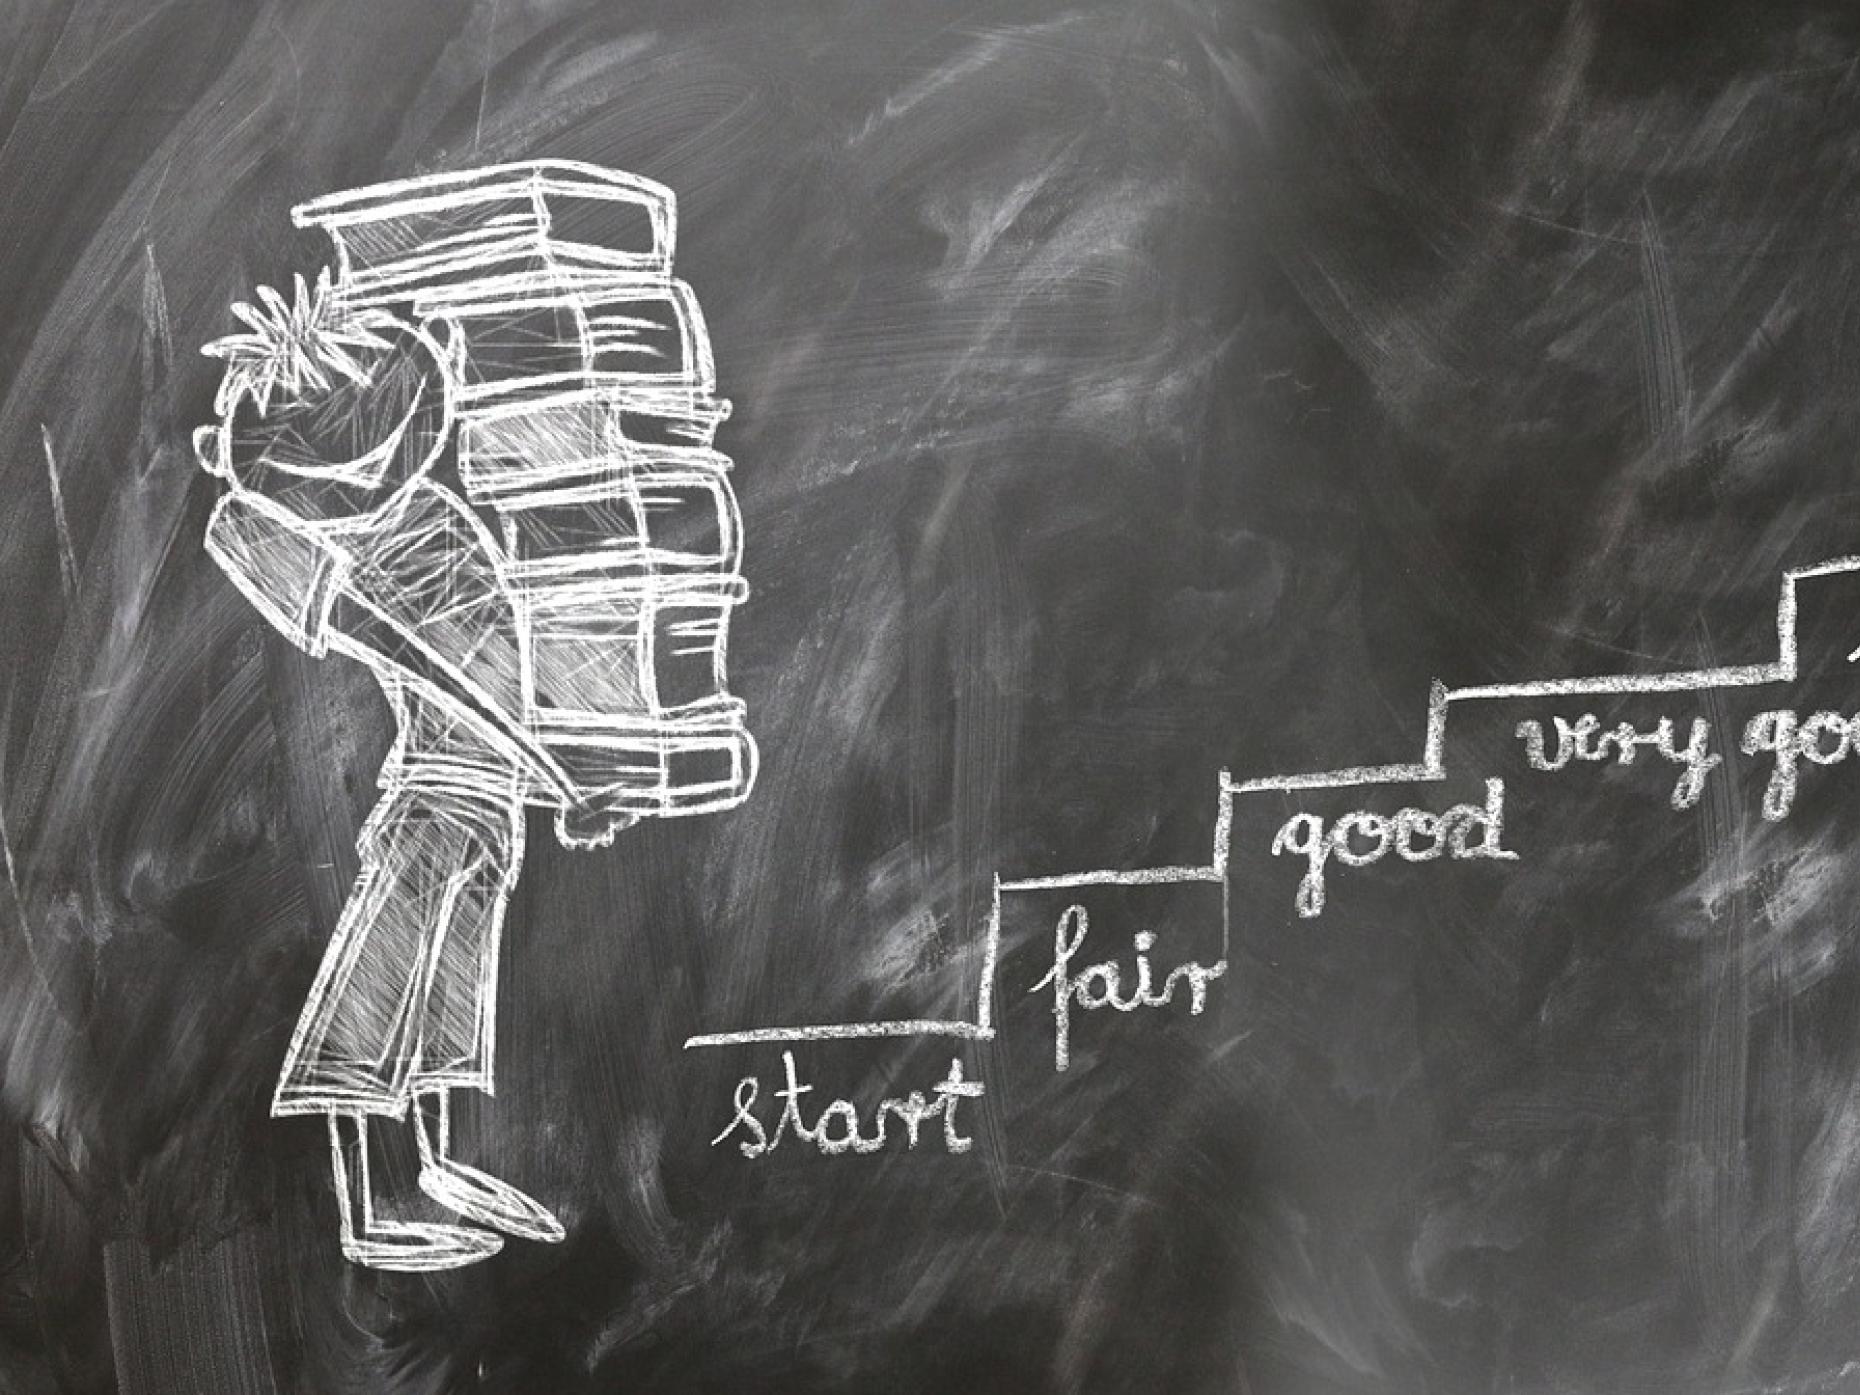 start
fair
good
very